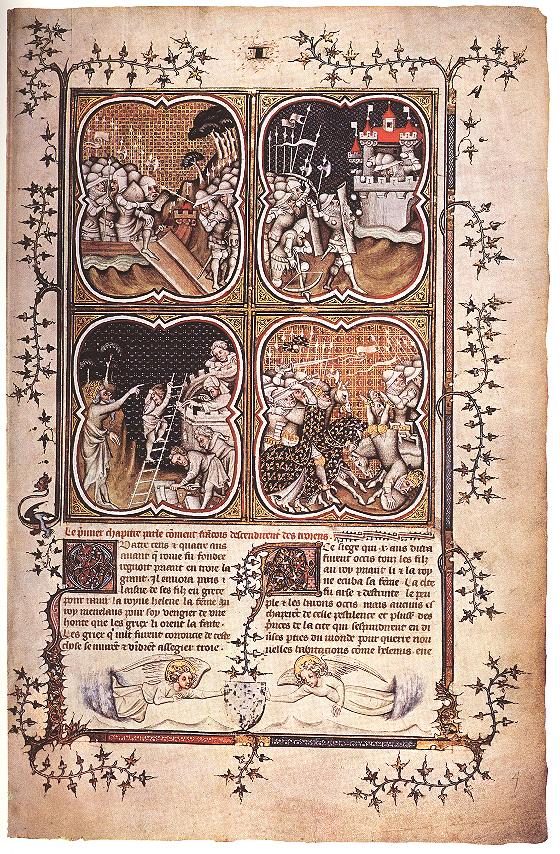 Le p̃mier chapitre parle cõment frãcois descendirent des troyens.
Quatre cens & quatre ans
auant q̃ rome fu fondee
regnoit priant en troie la
grant. Il enuoia paris
laisne de ses filz en grece
pour rauir la royne helene la feme au
roy menelaus pour soy vengier de vne
honte que les grez li orent ia faite.
Les griez q̃ mlt furent de ceste
chose se murẽt & vĩdrẽt assegier troie.
Ce siege qui x. ans dura
furent occis touz les filz
au roy priant li & la roy
ne ecuba sa feme. La cite
fu arse & destruite le peu
ple & les barons occis. mais aucuns
de celle pestilence et plus des
prĩces de la cite qui sespandirent en di
uses pties du monde pour querre nou
uelles habitacions cõme helenus ene